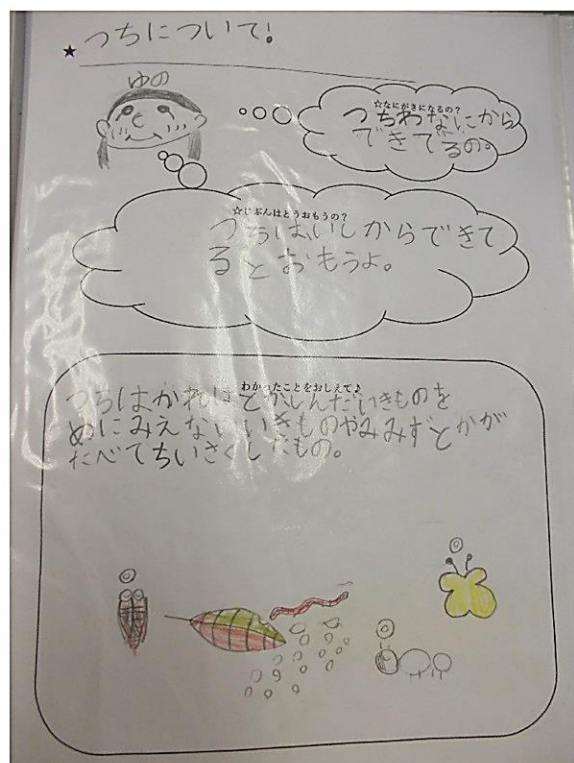 ★つちについて!
ゆの
☆なにがきになるの?
つちわなにから
できてるの。
☆じぶんはどうおもうの?
つちはいしからできて
るとおもうよ。
わかったことをおしえて♪
つちはかれはとかしんだいきものを
めにみえないいきものやみみずとかが
たべてちいさくしたもの。